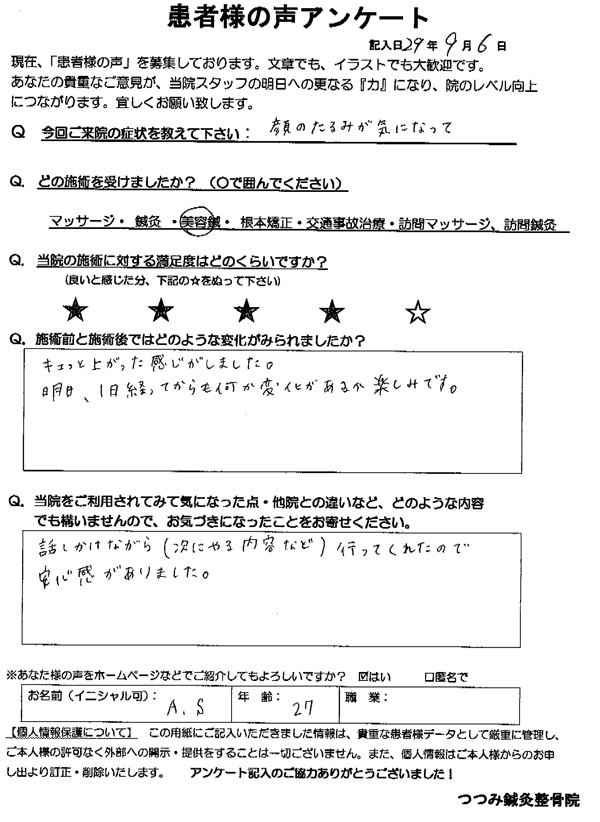 患者様の声アンケート
記入日29年9月6日
現在、「患者様の声」を募集しております。文章でも、イラストでも大歓迎です。
あなたの貴重なご意見が、当院スタッフの明日への更なる『力』になり、院のレベル向上
につながります。宜しくお願い致します。
Q 今回ご来院の症状を教えて下さい: 顔のたるみが気になって
Q. どの施術を受けましたか?(○で囲んでください)
マッサージ・ 鍼灸 ・美容鍼・ 根本矯正・交通事故治療・訪問マッサージ、訪問鍼灸
Q. 当院の施術に対する満足度はどのくらいですか?
(良いと感じた分、下記の☆をぬって下さい)
★ ★ ★ ★ ☆
Q. 施術前と施術後ではどのような変化がみられましたか?
キュッと上がった感じがしました。
明日、1日経ってからも何か変化があるか楽しみです。
Q. 当院をご利用されてみて気になった点・他院との違いなど、どのような内容
でも構いませんので、お気づきになったことをお寄せください。
話しかけながら(次にやる内容など)行ってくれたので
安心感がありました。
※あなた様の声をホームページなどでご紹介してもよろしいですか? ☑はい □匿名で
お名前(イニシャル可): A.S 年 齢: 27 職 業:
【個人情報保護について】 この用紙にご記入いただきました情報は、貴重な患者様データとして厳重に管理し、
ご本人様の許可なく外部への開示・提供をすることは一切ございません。また、個人情報はご本人様からのお申
し出より訂正・削除いたします。 アンケート記入のご協力ありがとうございました!
つつみ鍼灸整骨院